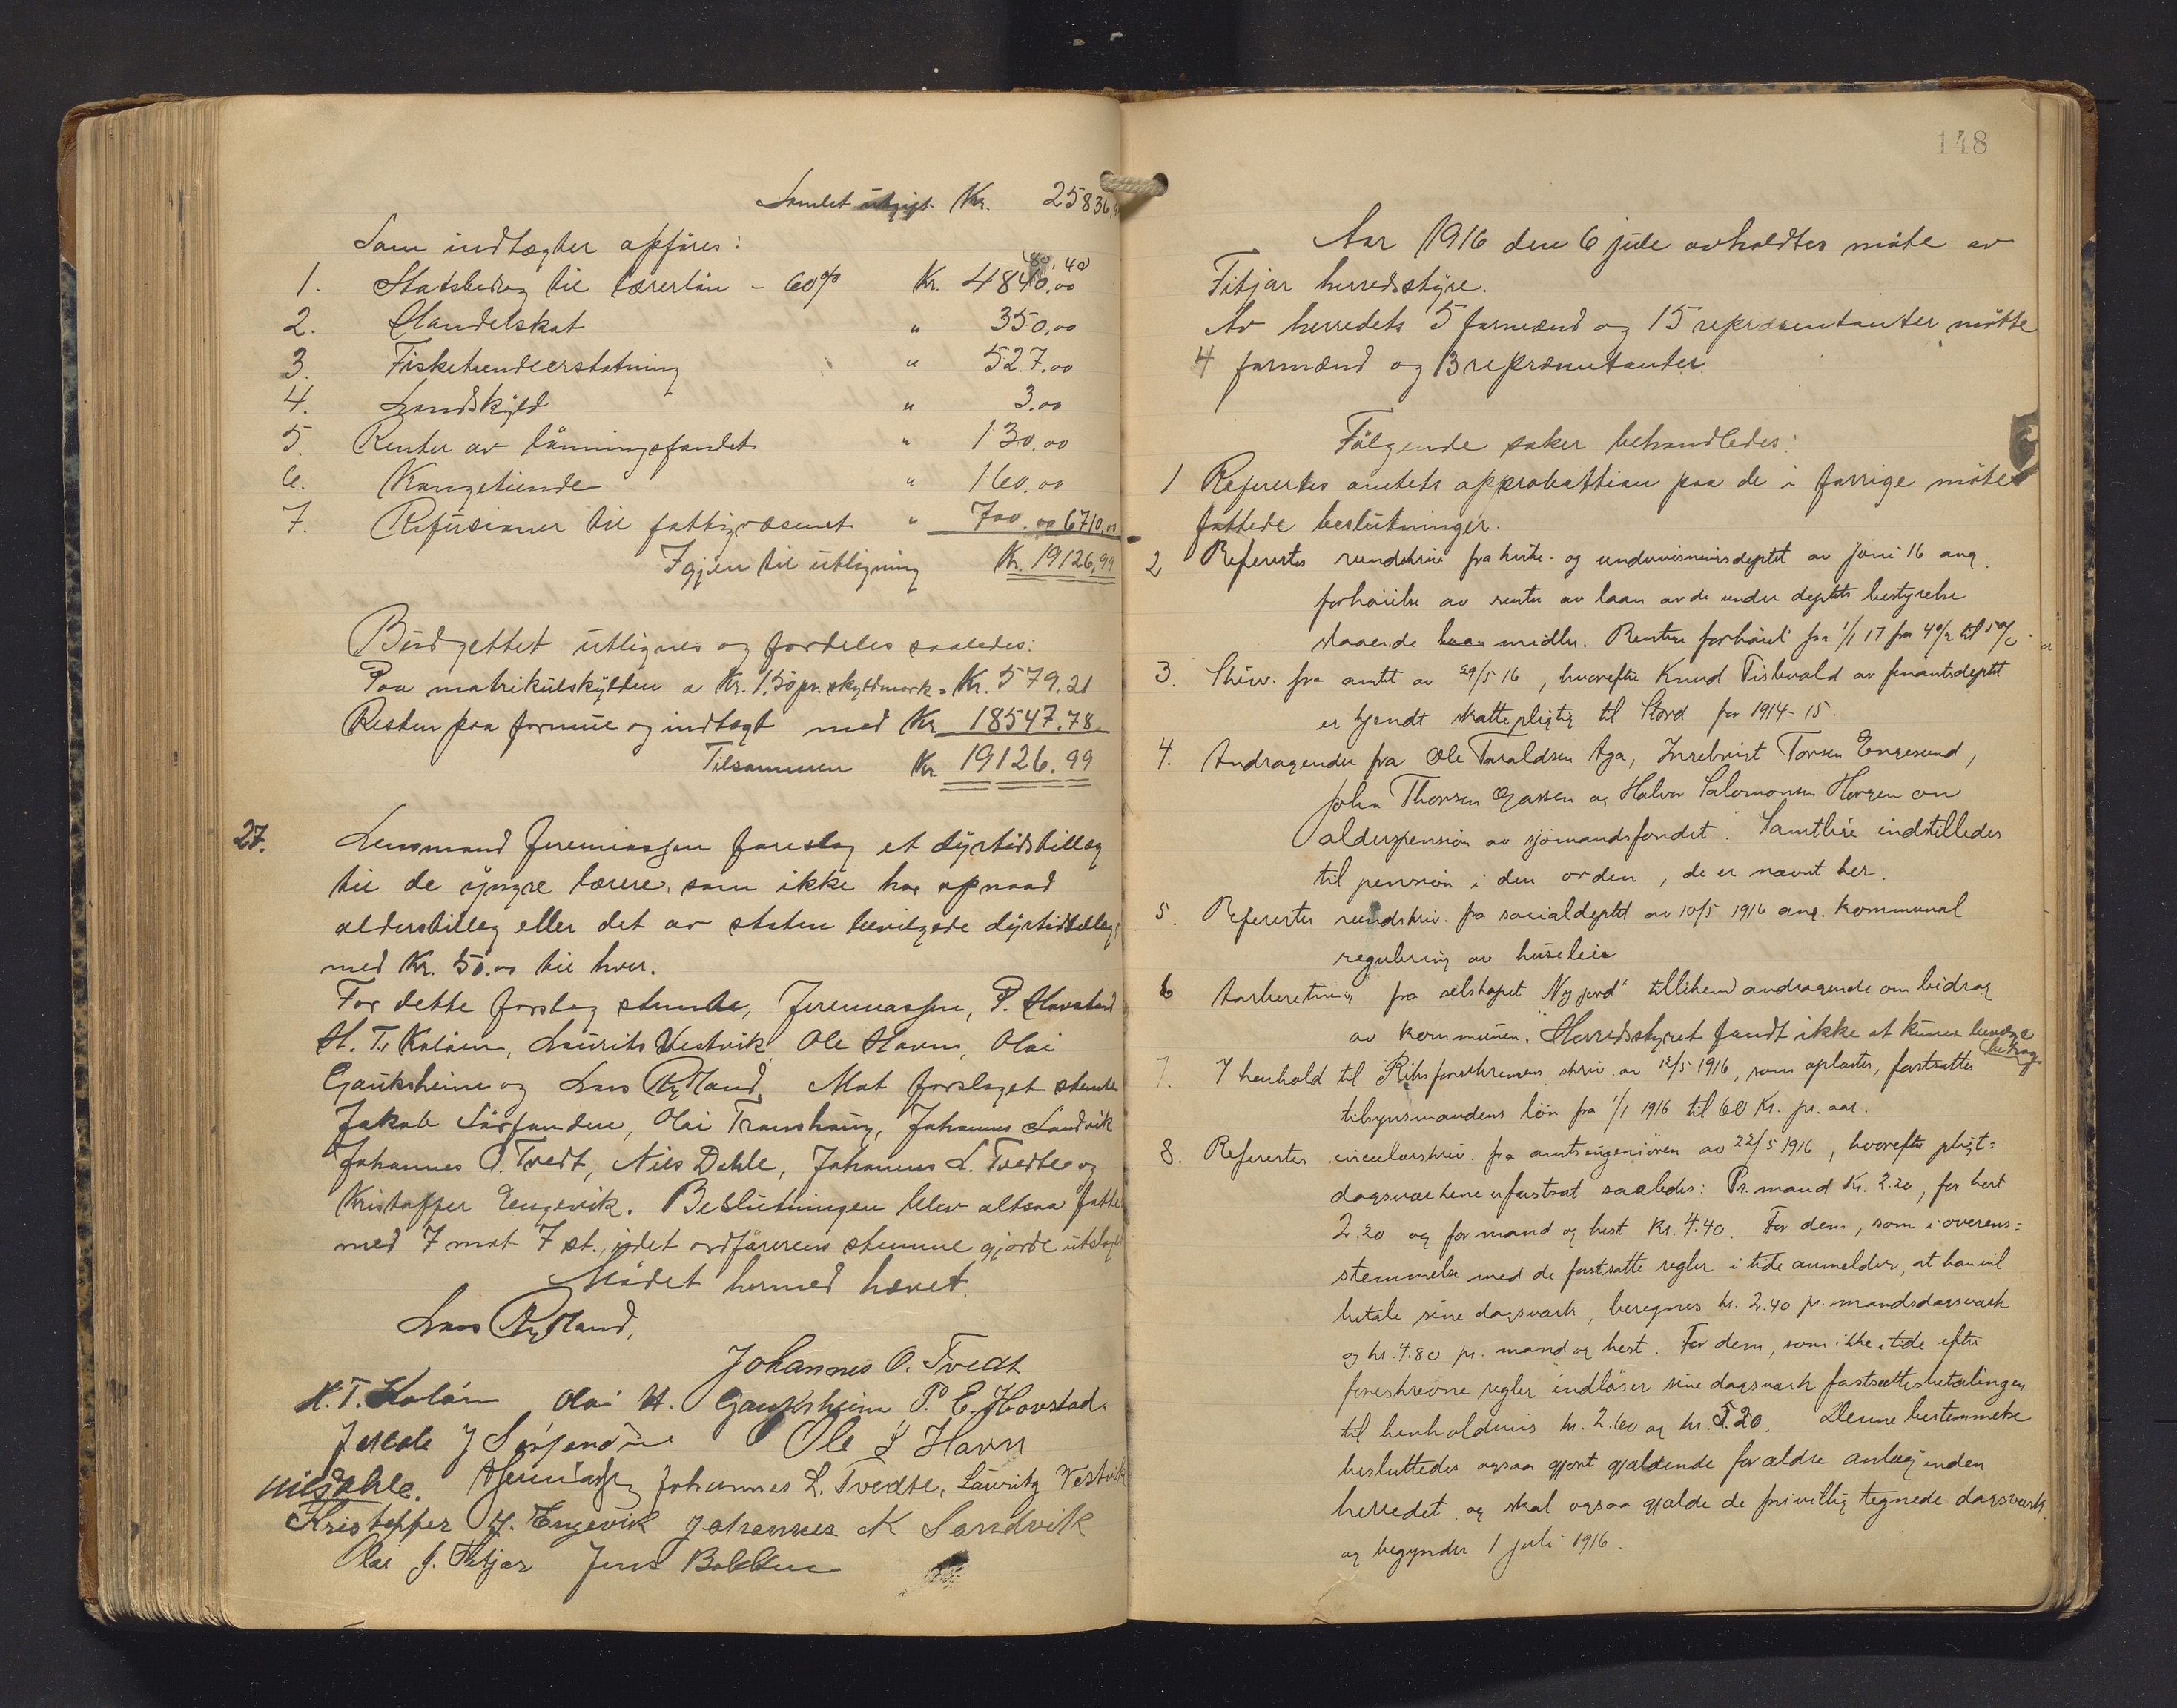 Samlet utgift Kr. 25836,
Som indtægter opføres:
1. Statsbidrag til lærerløn - 60% Kr. 4840,00 80,40
2. Handelskat " 350,00
3. Fisketiendeerstatning " 527,00
4. Landskyld " 3,00
5. Renter av lønningsfondet " 130,00
6. Kongetiende " 160,00
7. Refusioner til fattigvæsenet " 700,00 6710,00
Igjen til utligning Kr. 19126,99
Budgettet utlignes og fordeles saaledes:
Paa matrikulskylden a Kr. 1,50 pr. skyldmark = Kr. 579,21
Resten paa formue og indtægt med Kr 18547.78
Tilsammen Kr. 19126.99
27. Lensmand Jeremiassen foreslog et dyrtidstillæg
til de yngre lærere, som ikke har opnaad
alderstillæg eller det av staten bevilgede dyrtidstillæg,
med Kr. 50.00 til hver.
For dette forslag stemte, Jeremiassen, P. Hovstad
H. T. Koløen, Laurits Vestvik, Ole Havn, Olai
Gauksheim og Lars Rydland. Mot forslaget stemte
Jakob Sørfonden, Olai Transhaug, Johannes Sandvik
Johannes O. Tvedt, Nils Dahle, Johannes L. Tvedte og
Kristoffer Engevik. Beslutningen blev altsaa fattet
med 7 mot 7 st., idet ordførerens stemme gjorde utslaget
Mødet hermed hævet.
Lars Rydland,
Johannes O. Tvedt
H. T. Koløen Olai H. Gauksheim P. E. Hovstad.
Jakob J Sørfonden Ole S Havn
Nils Dahle. Jeremiassen Johannes L. Tvedte, Lauritz Vestvik
Kristoffer H. Engevik Johannes K Sandvik
Olai J. Fitjar Jens
148
Aar 1916 den 6 jule avholdtes møte av
Fitjar herredsstyre.
Av herredets 5 formænd og 15 repræsentanter møtte
4 formænd og 13 repræsentanter.
Følgende saker behandledes:
1 Referertes amtets approbattion paa de i forrige møte
fattede beslutninger.
2 Refertes rundskriv fra kirke- og undervisninsdeptet av juni 16 ang.
forhøielse av rente av laan av de under deptets bestyrelse
staaende laan midler. Renten forhøiet fra 1/1 17 fra 4% til 5%
3. Skriv. fra amtet av 29/5 16, hvorefter Knud Tislevold av finantsdeptet
er kjendt skattepligtig til Stord for 1914-15.
4. Andragender fra Ole Taraldsen Aga, Ingebrigt Torsen Engesund,
John Thorsen Aasen og Halvor Salomonsen Horgen om
alderspension av sjømandsfondet. Samtlige indstilledes
til pension i den orden, de er nævnt her.
5. Refertes rundskriv. fra socialdeptet av 10/5 1916 ang. kommunal
regulering av huseleie
6 Aarberetning fra selskapet "Ny jord" tillikemed andragende om bidrag
av kommunen. Herredsstyret fandt ikke at kunne bevilge
bidrag
7. I henhold til Riksforsikringens skriv. av 12/5 1916, som oplæstes, fastsattes
tilsynsmandens løn fra 1/1 1916 til 60 Kr. pr. aar.
8. Refertes circulærskriv. fra amtsingeniøren av 22/5 1916, hvorefter pligt=
dagsværkene er fastsat saaledes: Pr. mand Kr. 2.20, for hest
2.20 og for mand og hest Kr. 4.40. For dem, som i overens=
stemmelse med de fastsatte regler i tide anmelder, at han vil
betale sine dagsværk, beregnes kr. 2.40 pr. mandsdagsværk
og kr. 4.80 pr. mand og hest. For dem, som ikke i tide efter
foreskrevne regler indløser sine dagsværk fastsættes betalingen
til henholdsvis kr. 2.60 og kr. 5.20. Denne bestemmelse
besluttedes ogsaa gjort gjældende for ældre anlæg inden
herredet og skal ogsaa gjælde de frivillig tegnede dagsværk
og begynder 1 juli 1916.